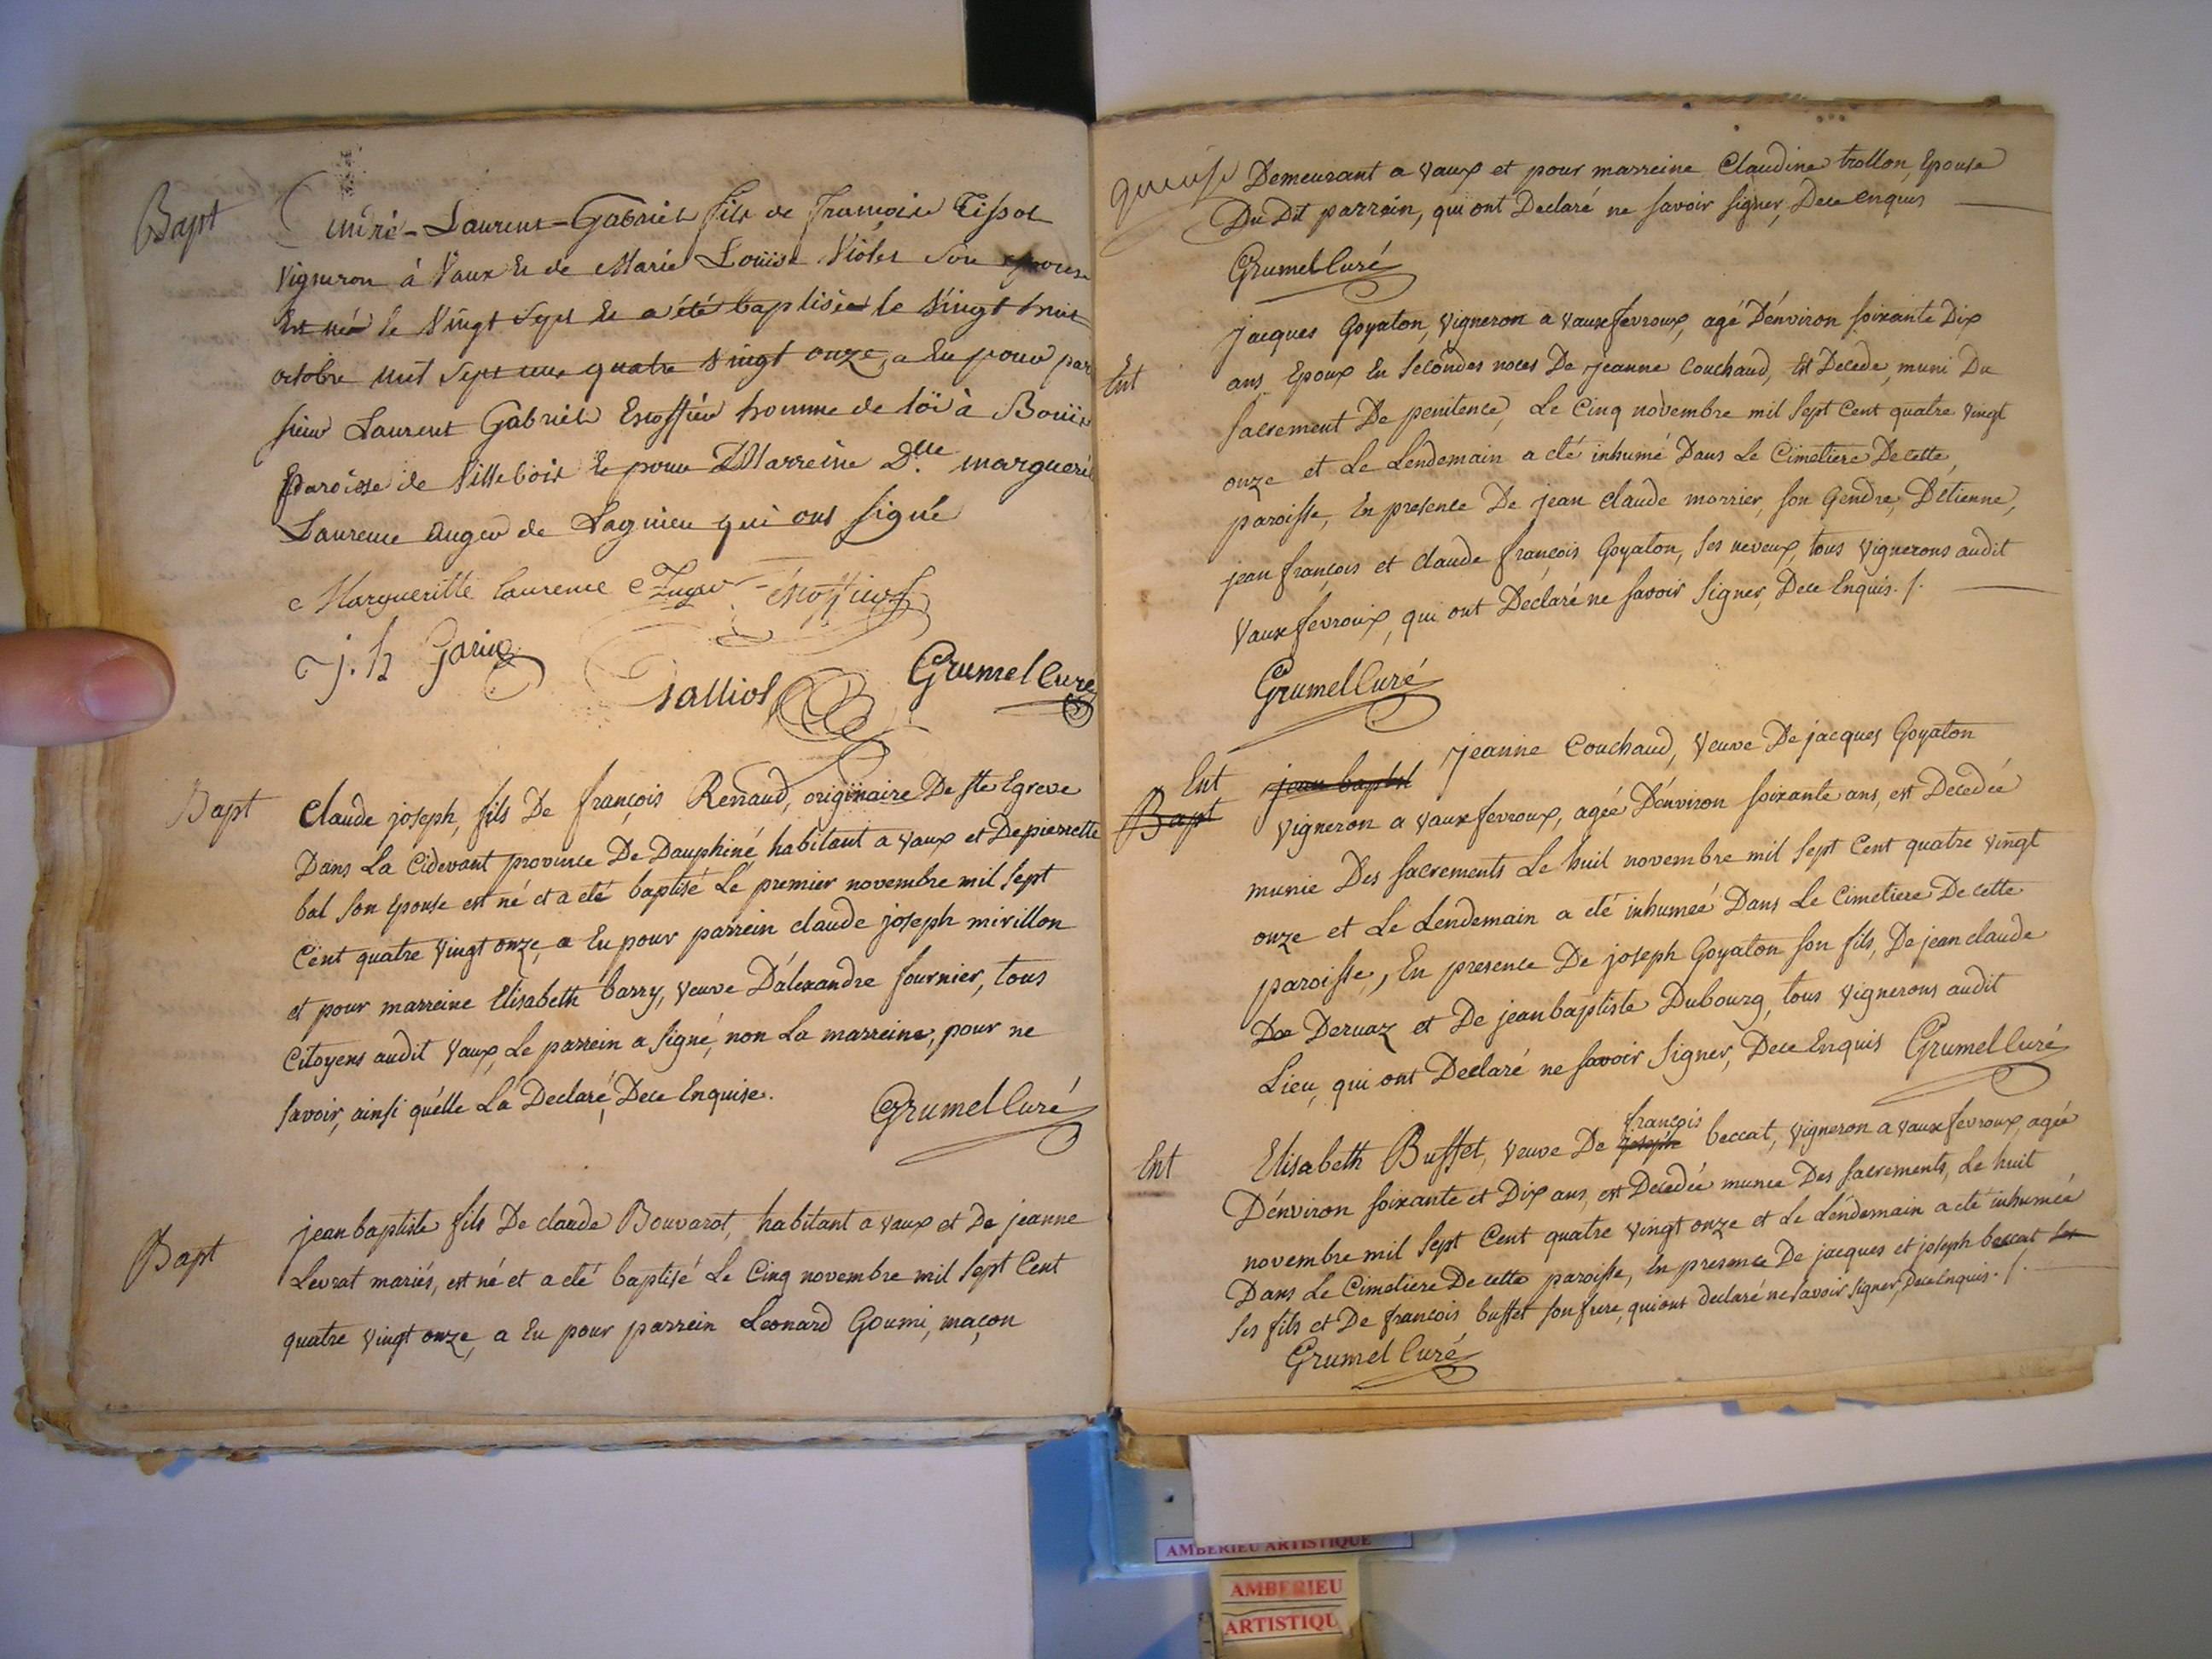 Bapt
André-Laurent-Gabriel fils de François Tissot
Vigneron à Vaux et de Marie Louise Violet Son epouse
Est né le Vingt Sept et a été baptisé le Vingt huit
octobre mil Sept cent quatre Vingt onze, a Eu pour par
sieur Laurent Gabriel Escoffier homme de loi à Bouis
paroisse de Villebois Et pour Marreine D.lle marguerit
Laurence Auger de Lagnieu qui ont signé
Margueritte laurence Auger
J. h
Grumel Curé
Bapt
Claude joseph, fils De françois Renaud, originaire De ste Egreve
Dans La Cidevant province De Dauphiné habitant a Vaux et De pierrette
bal son Epouse est né et a eté baptisé Le premier novembre mil Sept
Cent quatre Vingt onze, a Eu pour parrein claude joseph mirillon
et pour marreine Elisabeth barry, Veuve D'alexandre fournier, tous
Citoyens audit Vaux, Le parrein a Signé, non La marreine, pour ne
savoir, ainsi qu'elle La Declaré, Dece Enquise.
Grumel Curé
Bapt
jean baptiste fils De claude Bouvarot, habitant a Vaux et De jeanne
Levrat mariés, est né et a eté baptisé Le Cinq novembre mil Sept Cent
quatre Vingt onze, a Eu pour parrein Leonard Goumi, maçon
Demeurant a Vaux et pour marreine Claudine trollon, Epouse
Du Dit parrain, qui ont Declaré ne savoir signer, Dece enquis
Grumel Curé
Ent
jacques Goyaton, Vigneron a Vauxfevroux, agé D'environ soixante Dix
ans Epoux En Secondes noces De jeanne Couchaud, Est Decede, muni Du
sacrement De penitence, Le Cinq novembre mil Sept Cent quatre Vingt
onze et Le Lendemain a eté inhumé Dans Le Cimetiere De cette
paroisse, En presence De jean claude morrier, son Gendre, D'etienne,
jean françois et claude françois Goyaton, ses neveux, tous Vignerons audit
Vauxfevroux, qui ont Declaré ne savoir Signer, Dece Enquis. /.
Grumel Curé
Ent jean baptist Jeanne Couchaud, Veuve De jacques Goyaton
Bapt Vigneron a Vauxfevroux, agée D'environ soixante ans, est Decedée
munie Des sacrements Le huit novembre mil Sept Cent quatre Vingt
onze et Le Lendemain a eté inhumée Dans Le Cimetiere De cette
paroisse, En presence De joseph Goyaton son fils, De jean claude
De Dervaz et De jean baptiste Dubourg, tous Vignerons audit
Lieu, qui ont Declaré ne savoir Signer, Dece Enquis Grumel Curé
françois
Ent Elisabeth Buffet, Veuve De joseph beccat, Vigneron a Vauxfevroux, agée
D'environ soixante et Dix ans, est Decedée munie Des sacrements, Le huit
novembre mil Sept Cent quatre Vingt onze et Le Lendemain a eté inhumée
Dans Le Cimetiere De cette paroisse, En presence De jacques et joseph beccat
ses fils et De françois buffet son frere, qui ont declaré ne savoir signer, Dece enquis. /.
Grumel Curé
AMBERIEU ARTISTIQUE
AMBERIEU
ARTISTIQU